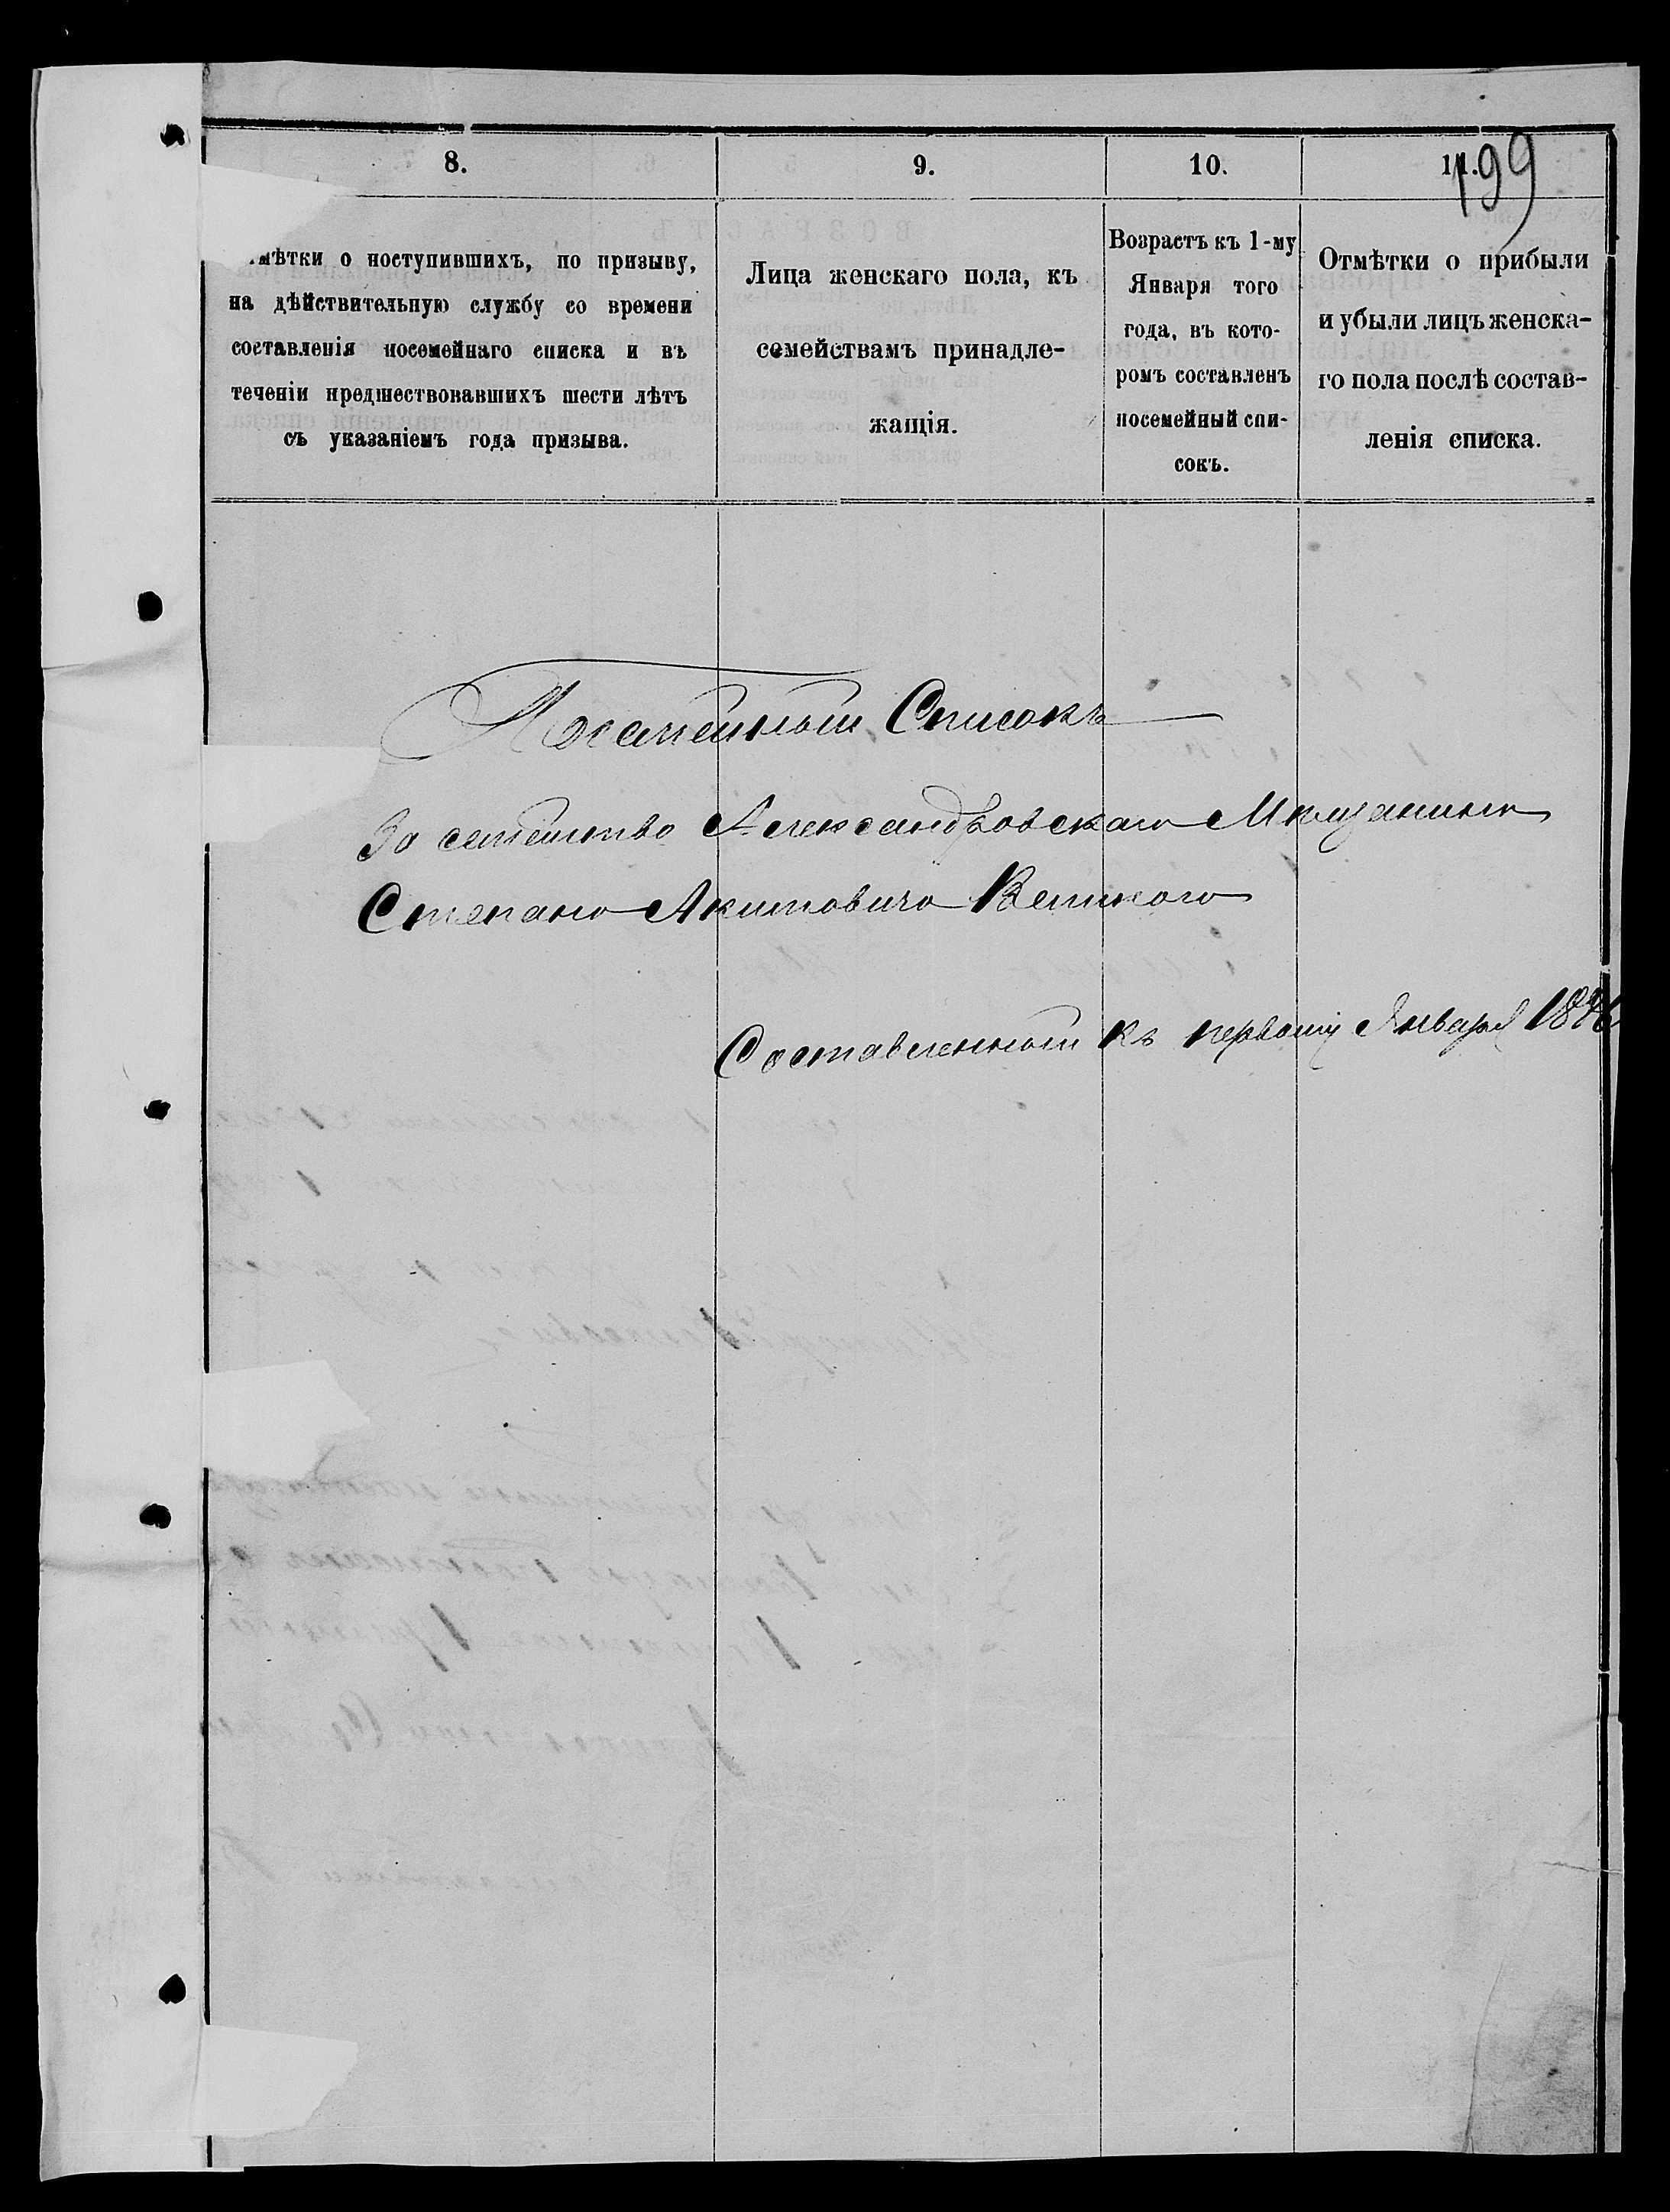 199
8.
9.
10.
11.
мѣтки о поступившихъ, по призыву,
на дѣйствительную службу со времени
составленія посемейнаго списка и въ
теченіи предшествовавшихъ шести лѣтъ
съ указаніемъ года призыва.
Лица женскаго пола, къ
семействамъ принадле-
жащія.
Возрастъ къ 1-му
Января того
года, въ кото-
ромъ составленъ
посемейный спи-
сокъ.
Отмѣтки о прибыли
и убыли лицъ женска-
го пола послѣ состав-
ленія списка.
Посемейный Списокъ
За семейство Александровскаго Мѣщанина
Степана Акимовича Великого
Составленный къ первому Января